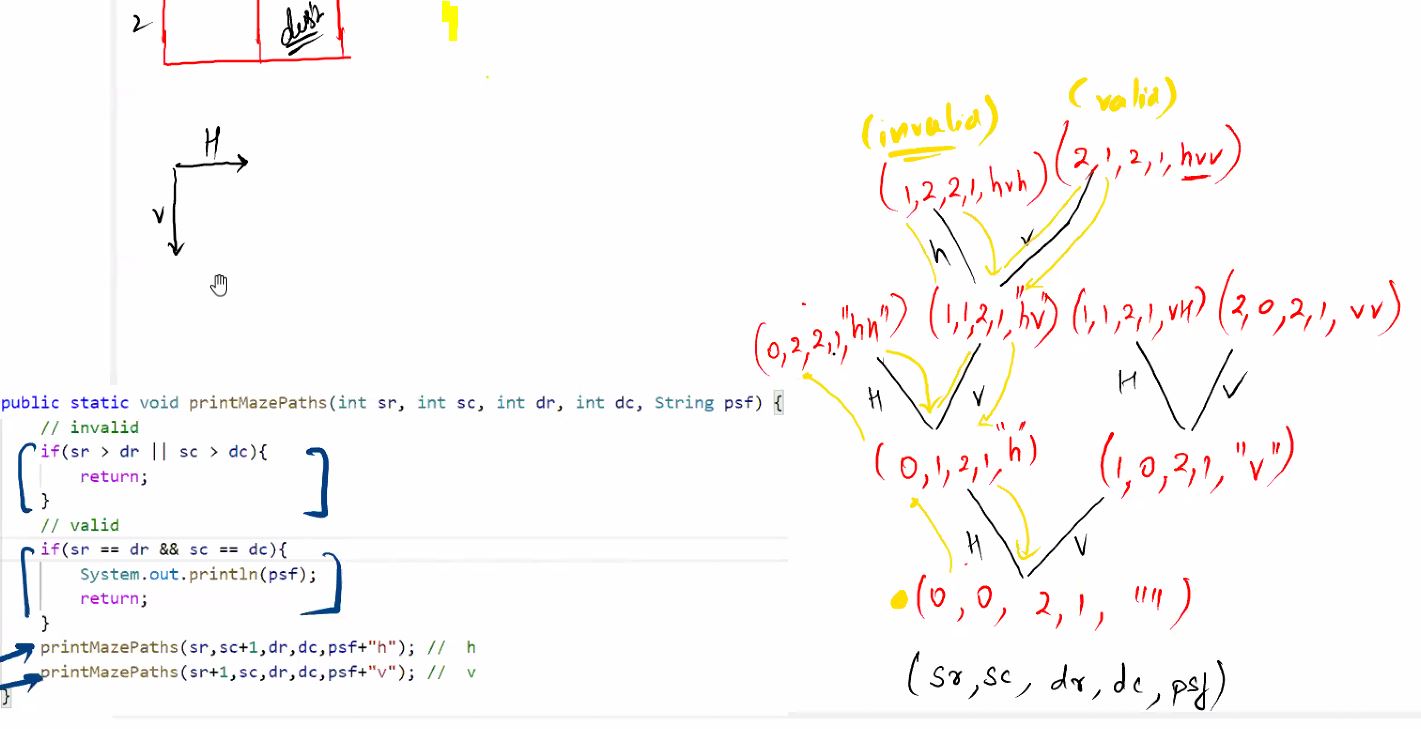 2
dest
H
v
public static void printMazePaths(int sr, int sc, int dr, int dc, String psf) {
// invalid
if(sr > dr || sc > dc){
return;
}
// valid
if(sr == dr && sc == dc){
System.out.println(psf);
return;
}
printMazePaths(sr,sc+1,dr,dc,psf+"h"); // h
printMazePaths(sr+1,sc,dr,dc,psf+"v"); // v
}
(invalid) (valid)
(1,2,2,1,hvh) (2,1,2,1,hvv)
h v
(0,2,2,1,"hh") (1,1,2,1,"hv") (1,1,2,1,vH) (2,0,2,1,vv)
H v H V
(0,1,2,1,"h") (1,0,2,1,"v")
H V
(0,0,2,1,"")
(sr,sc,dr,dc,psf)